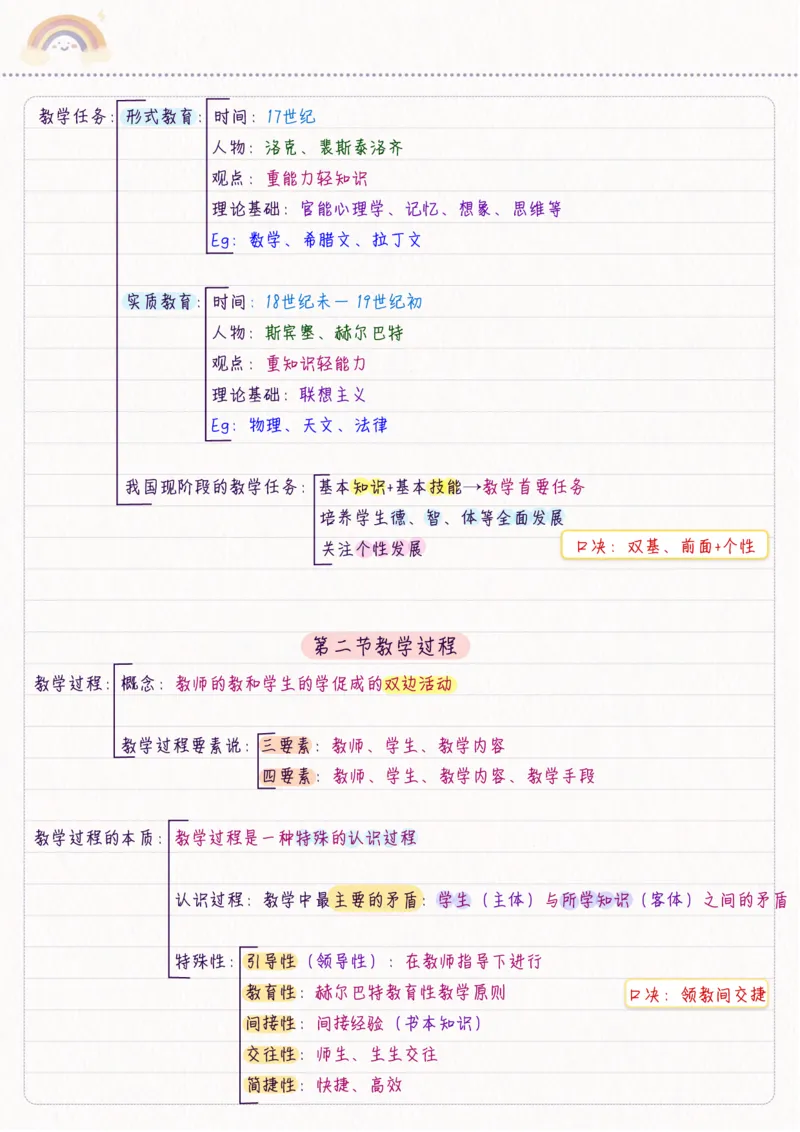 教学任务: 形式教育: 时间: 17世纪
人物: 洛克、裴斯泰洛齐
观点: 重能力轻知识
理论基础: 官能心理学、记忆、想象、思维等
Eg: 数学、希腊文、拉丁文
实质教育: 时间: 18世纪末一 19世纪初
人物: 斯宾塞、赫尔巴特
观点: 重知识轻能力
理论基础: 联想主义
Eg: 物理、天文、法律
我国现阶段的教学任务: 基本知识+基本技能→教学首要任务
培养学生德、智、体等全面发展
关注个性发展
口决: 双基、前面+个性
第二节教学过程
教学过程: 概念: 教师的教和学生的学促成的双边活动
教学过程要素说: 三要素: 教师、学生、教学内容
四要素: 教师、学生、教学内容、教学手段
教学过程的本质: 教学过程是一种特殊的认识过程
认识过程: 教学中最主要的矛盾: 学生（主体）与所学知识（客体）之间的矛盾
特殊性: 引导性（领导性）: 在教师指导下进行
教育性: 赫尔巴特教育性教学原则
口决: 领教间交捷
间接性: 间接经验（书本知识）
交往性: 师生、生生交往
简捷性: 快捷、高效